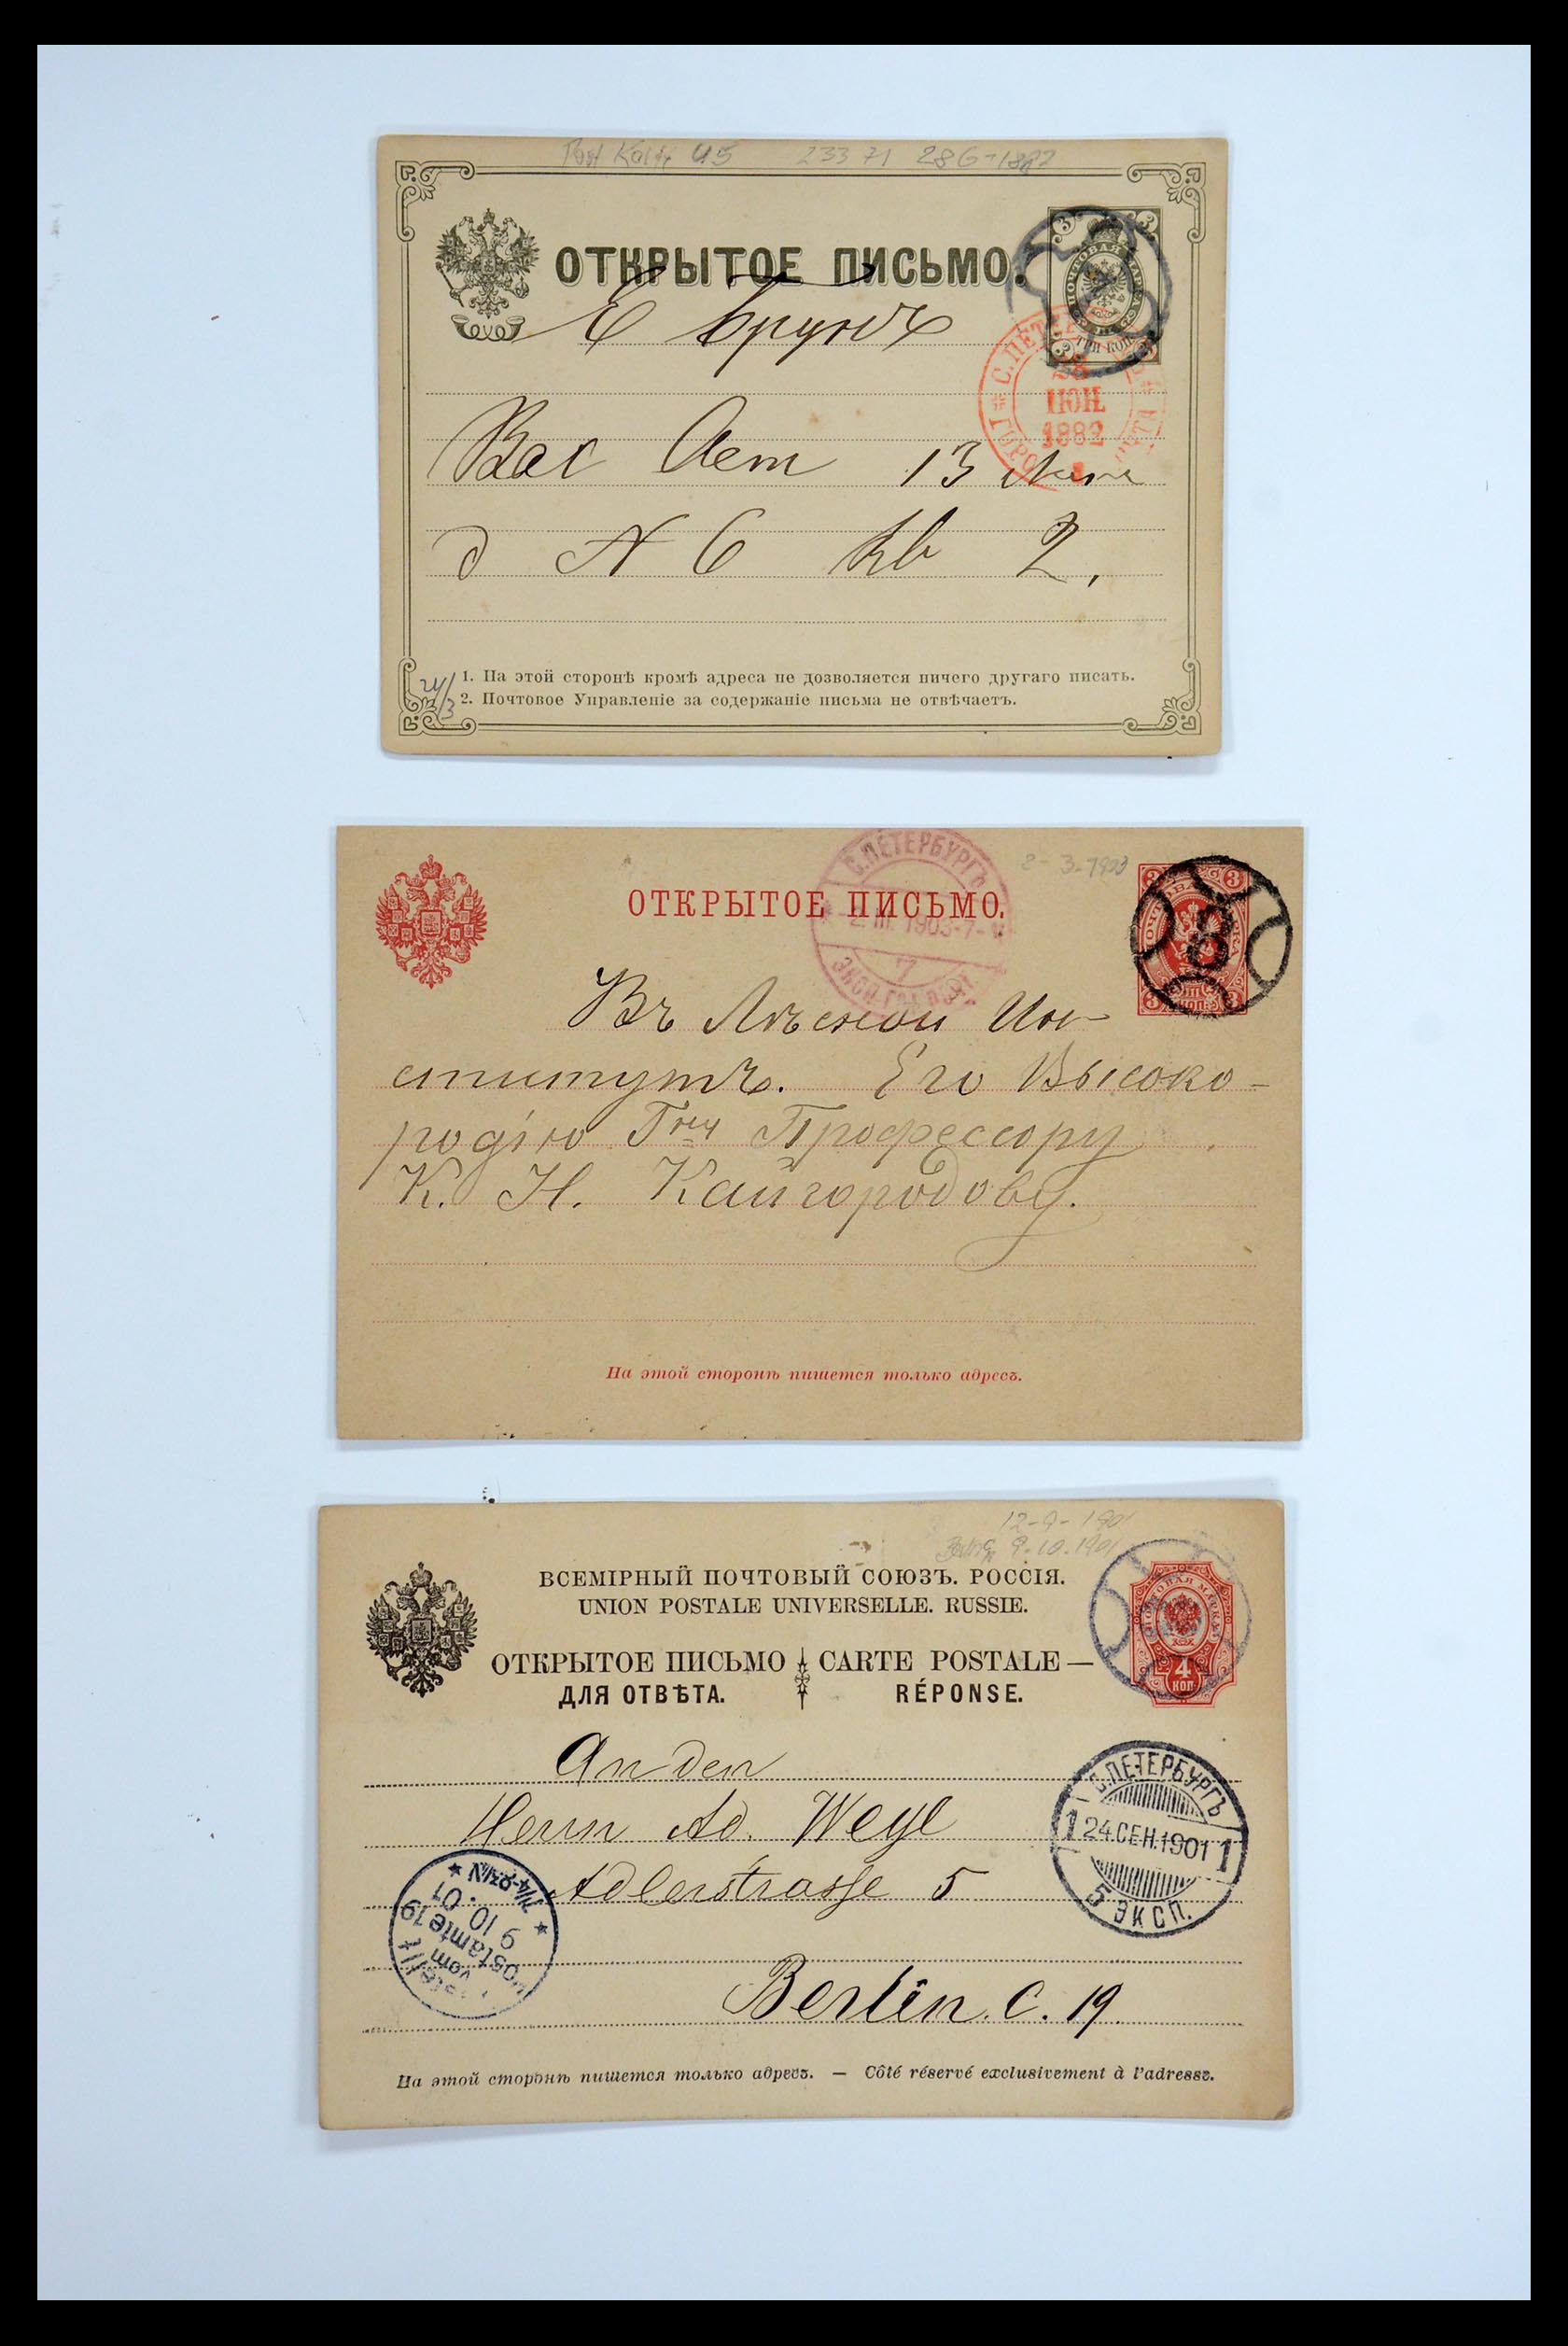 Post Karte U5 233 71 286-1882
ОТКРЫТОЕ ПИСЬМО.
3 3
ПОЧТОВАЯ МАРКА
ТРИ КОП.
С.ПЕТЕР
ИЮН.
1882
Е Брунъ
Вас Аст 13 Лин
д N 6 кв 2.
1. На этой сторонѣ кромѣ адреса не дозволяется ничего другаго писать.
2. Почтовое Управленіе за содержаніе письма не отвѣчаетъ.
24/3
С.ПЕТЕРБУРГЪ
2- 3-1903
ОТКРЫТОЕ ПИСЬМО.
2. III. 1903-7-
7
8
Въ Лѣсной Ин-
ститутъ. Его Высоко-
родію Гну Профессору
К. Н. Кайгородову.
На этой сторонѣ пишется только адресъ.
12-9-1901
9.10.1901
ВСЕМІРНЫЙ ПОЧТОВЫЙ СОЮЗЪ. РОССІЯ.
UNION POSTALE UNIVERSELLE. RUSSIE.
ОТКРЫТОЕ ПИСЬМО CARTE POSTALE —
ДЛЯ ОТВѢТА. RÉPONSE.
ПОЧТОВАЯ МАРКА
4 КОП
An den
Herrn Ad. Weyl
Adlerstrasse 5
Berlin. C. 19.
С.ПЕТЕРБУРГЪ
1 24.СЕН.1901 1
5 ЭКСП.
vom
Postamte 19
9 10. 01
На этой сторонѣ пишется только адресъ. — Côté réservé exclusivement à l'adresse.